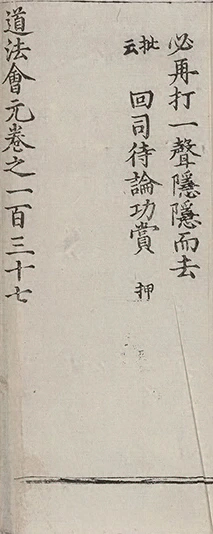 必再打一聲隱隱而去
批云 回司待論功賞 押
道法會元卷之一百三十七